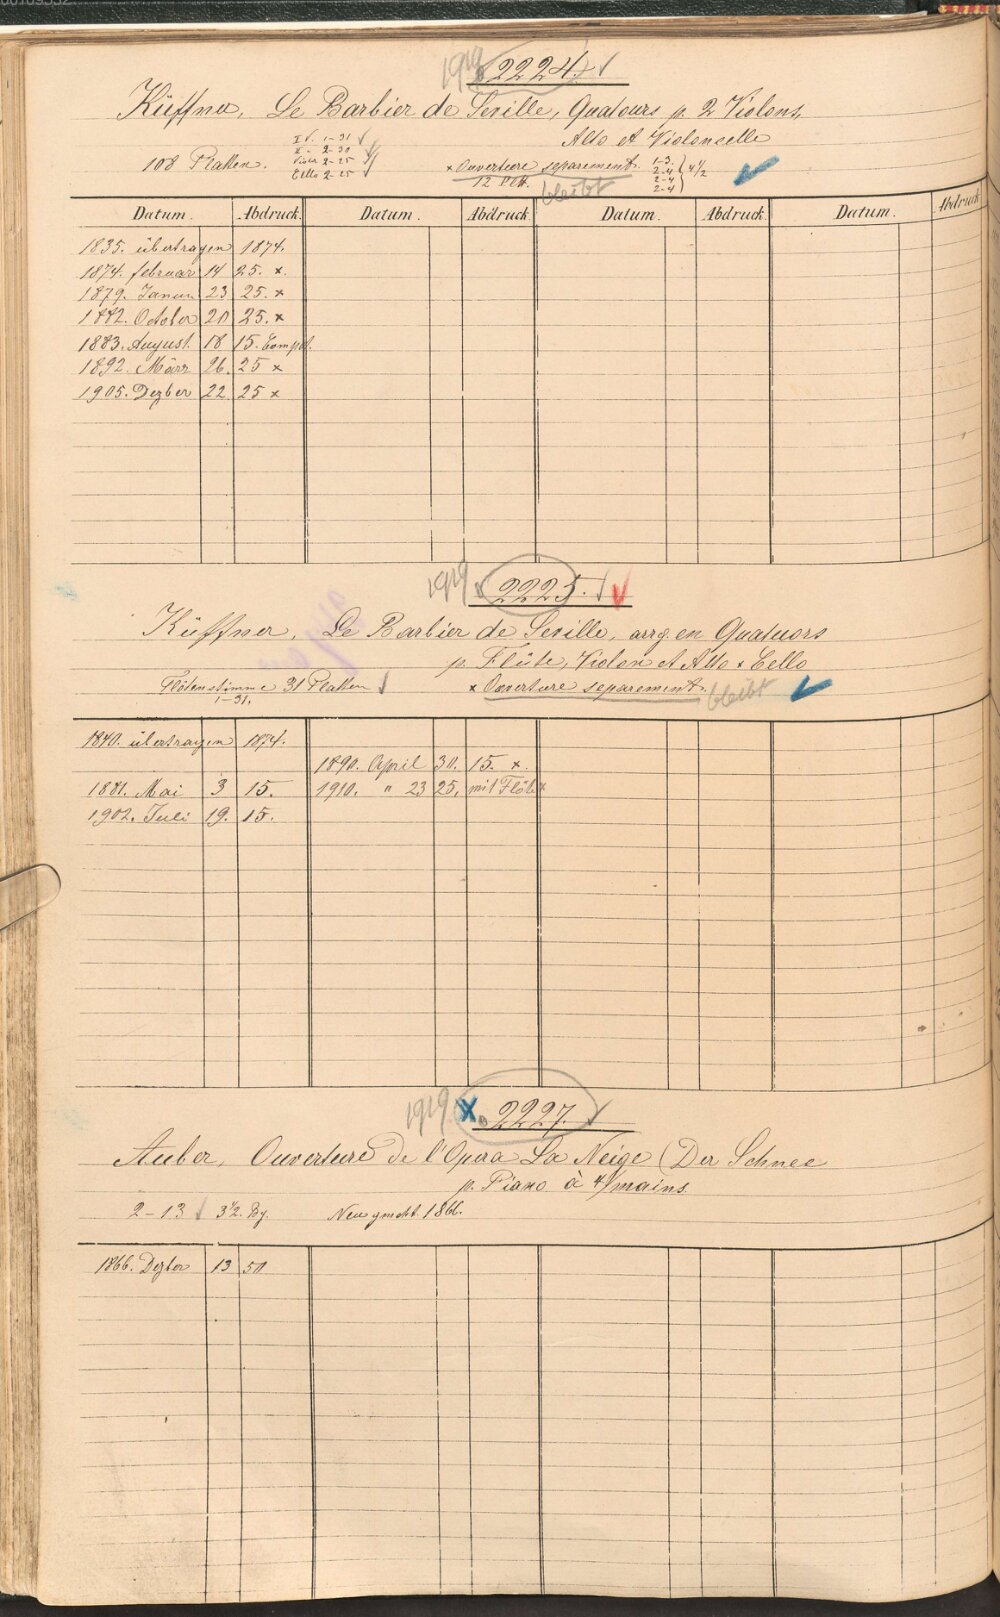 1919 2224.
Küffner, Le Barbier de Seville, Quatuors p. 2 Violons,
Alto et Violoncelle
108 Platten.
I V. 1-31
II " 2-30
Viola 2-25
Cello 2-25
x Ouverture separement.
12 Pltt.
bleibt
1-3.
2-4
2-4
2-4
4 1/2
Datum. Abdruck Datum. Abdruck Datum. Abdruck Datum. Abdruck
1835. übertragen 1874.
1874. februar 14 25. x.
1879. Januar 23 25. x
1882. October 20 25. x
1883. August. 18 15. Complt.
1892. März 26. 25 x
1905. Dezber 22. 25 x
1919 2225.
Küffner, Le Barbier de Seville, arrg. en Quatuors
p. Flûte, Violon et Alto x Cello
Flötenstimme 31 Platten
1-31.
x Ouverture separement. bleibt
1840. übertragen 1874.
1890. April 30. 15. x.
1881. Mai 3 15. 1910. " 23 25. mit Flöte x
1902. Juli 19. 15.
1919 X. 2227.
Auber, Ouverture de l'Opera La Neige (Der Schnee
p. Piano à 4/mains.
2-13 3 1/2. Bg. Neu gmcht. 1866.
1866. Dezber 13 50